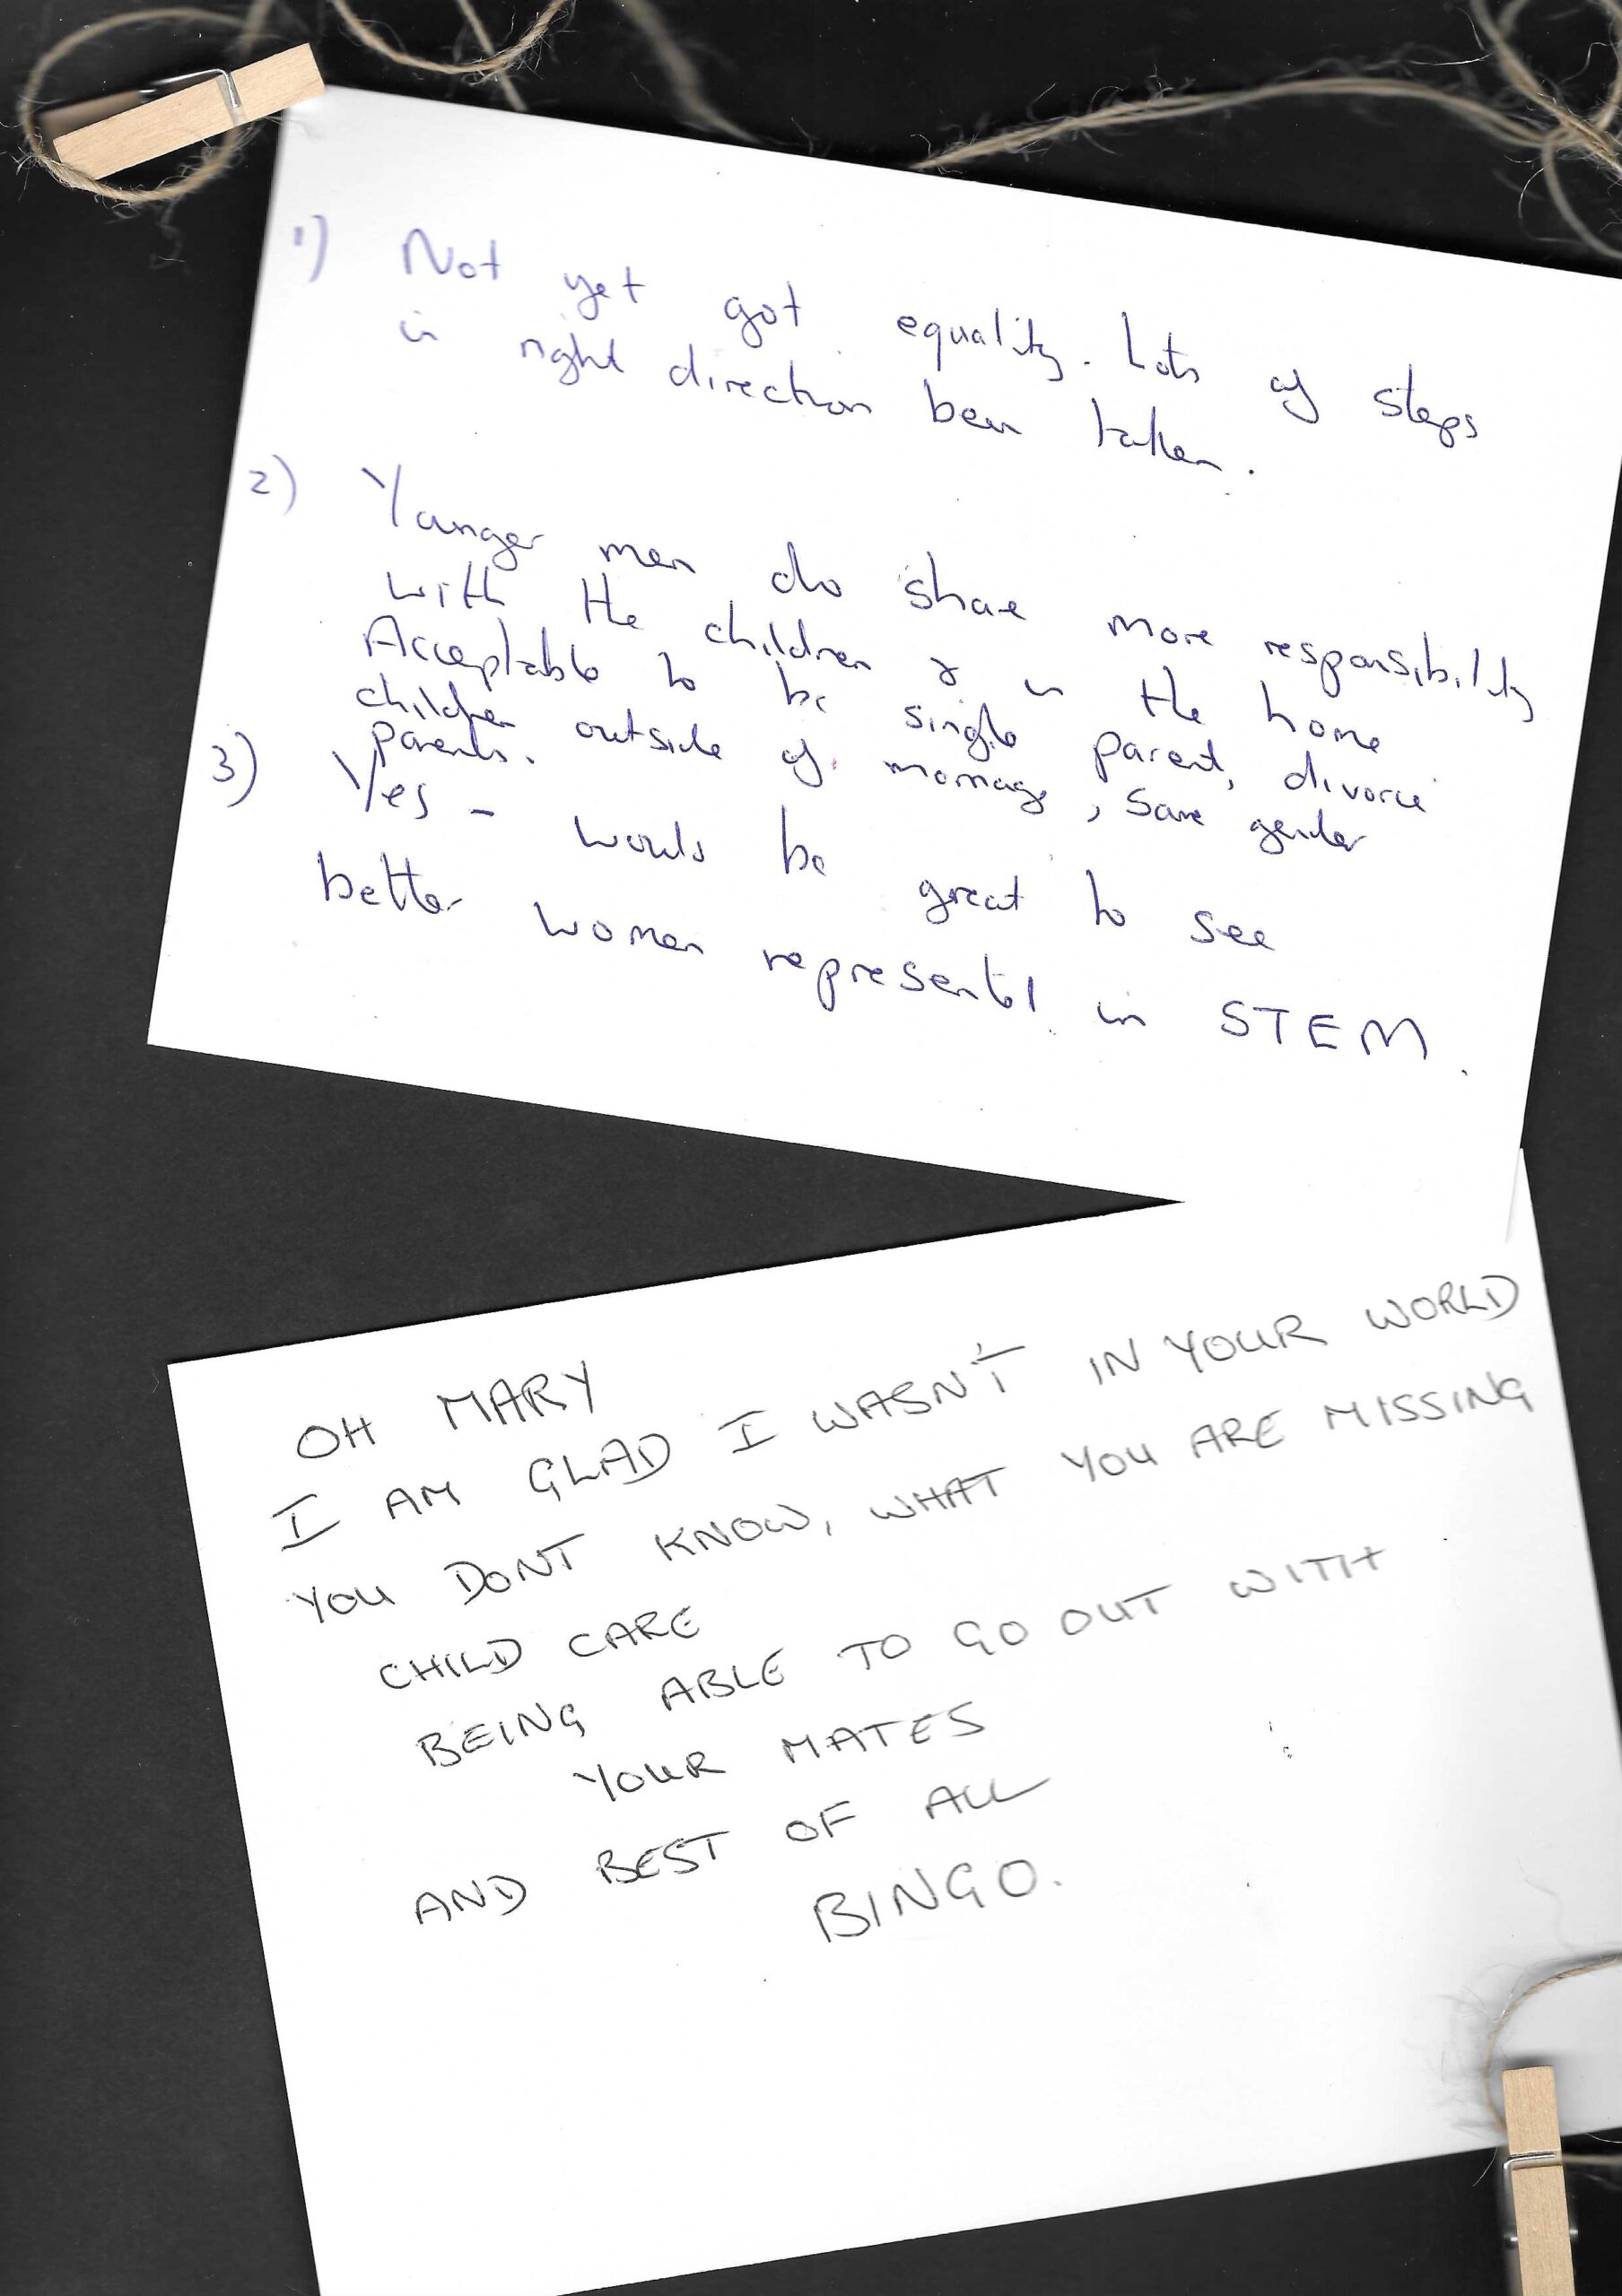 1) Not yet got equality. Lots of steps
in right direction been taken.
2) Younger men do share more responsibility
with the children & in the home
Acceptable to be single parent, divorce
children outside of marriage, same gender
parents.
3) Yes - would be great to see
better women represented in STEM.
OH MARY
I AM GLAD I WASN'T IN YOUR WORLD
YOU DONT KNOW, WHAT YOU ARE MISSING
CHILD CARE
BEING ABLE TO GO OUT WITH
YOUR MATES
AND BEST OF ALL
BINGO.